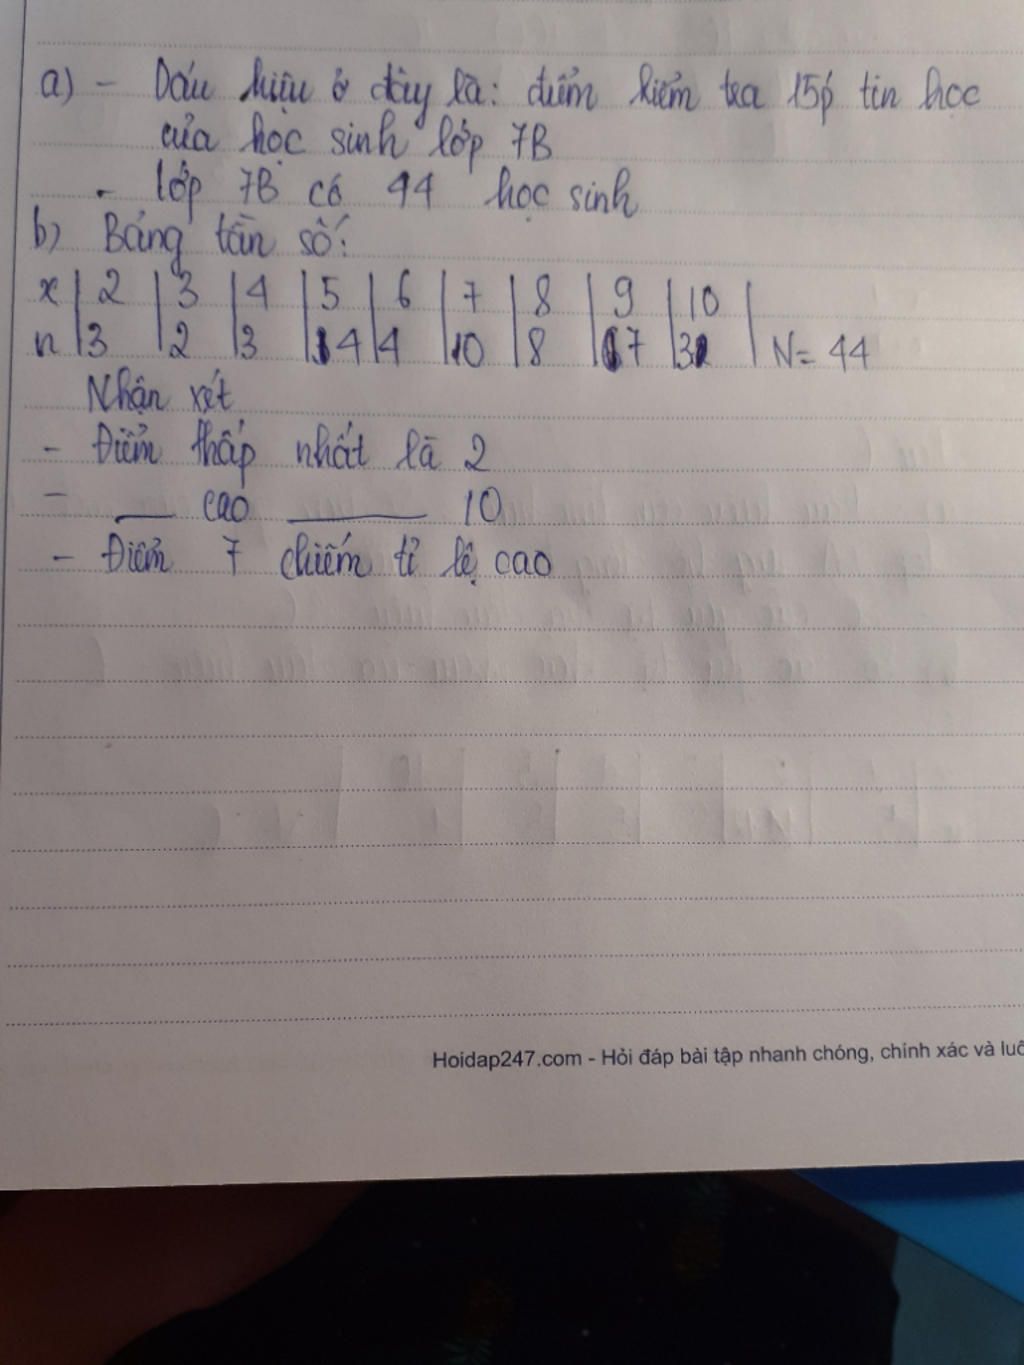 a) - Dấu hiệu ở đây là: điểm kiểm tra 15p tin học
của học sinh lớp 7B
- lớp 7B có 44 học sinh
b) Bảng tần số:
x | 2 | 3 | 4 | 5 | 6 | 7 | 8 | 9 | 10 |
n | 3 | 2 | 3 | 4 | 4 | 10 | 8 | 7 | 3 | N= 44
Nhận xét
- Điểm thấp nhất là 2
- — cao —— 10
- Điểm 7 chiếm tỉ lệ cao
Hoidap247.com - Hỏi đáp bài tập nhanh chóng, chính xác và luô